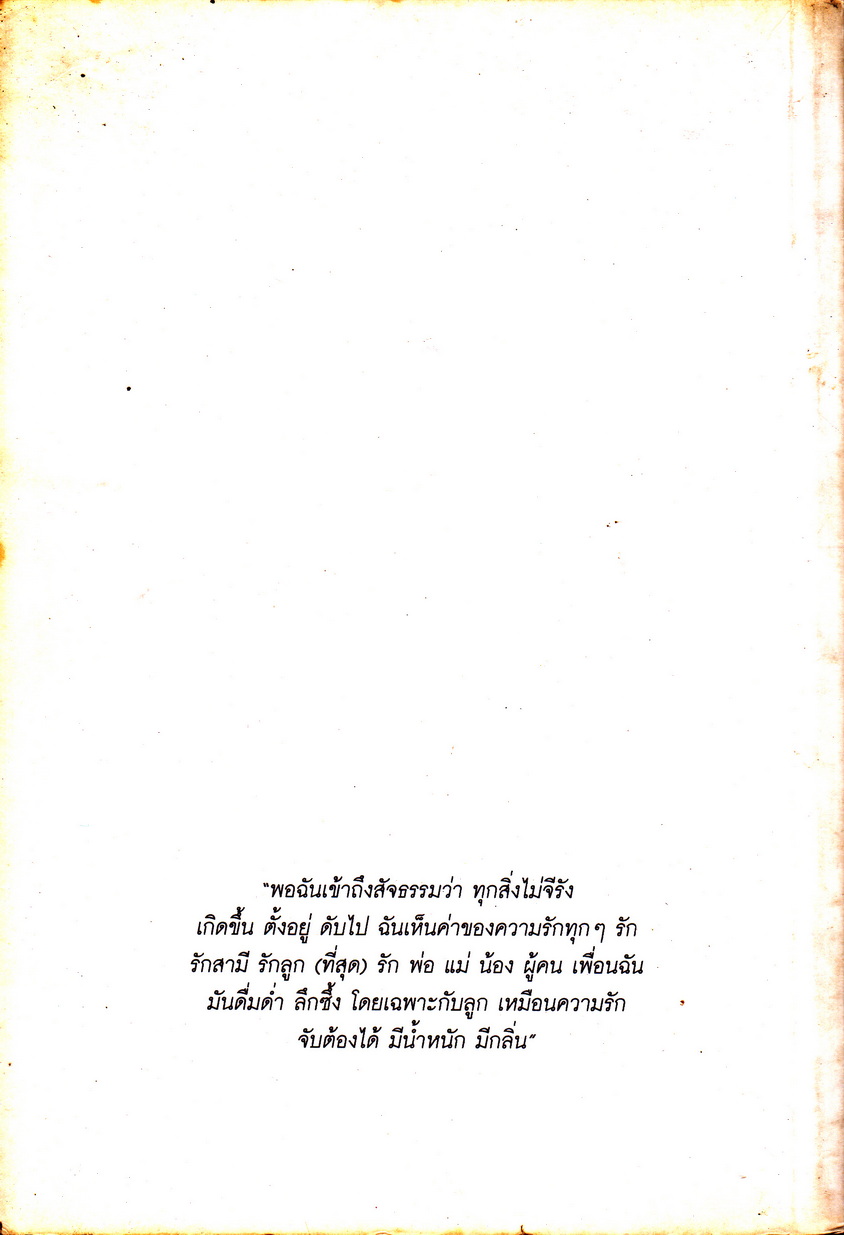 “พอฉันเข้าถึงสัจธรรมว่า ทุกสิ่งไม่จีรัง
เกิดขึ้น ตั้งอยู่ ดับไป ฉันเห็นค่าของความรักทุกๆ รัก
รักสามี รักลูก (ที่สุด) รัก พ่อ แม่ น้อง ผู้คน เพื่อนฉัน
มันดื่มด่ำ ลึกซึ้ง โดยเฉพาะกับลูก เหมือนความรัก
จับต้องได้ มีน้ำหนัก มีกลิ่น”